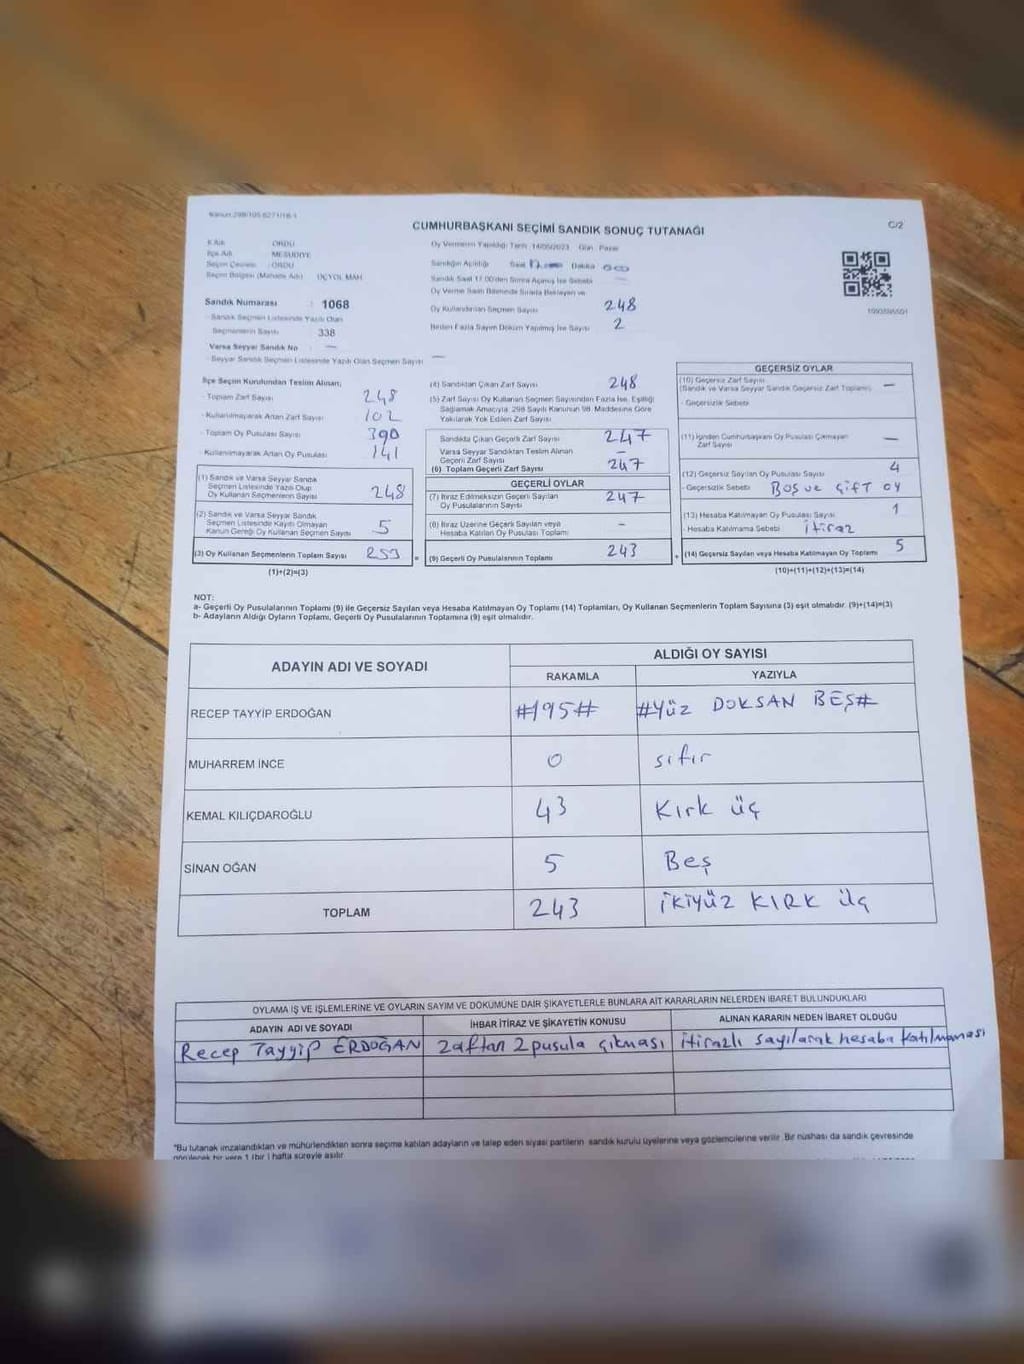 Kanun:298/105-6271/16-1
CUMHURBAŞKANI SEÇİMİ SANDIK SONUÇ TUTANAĞI
C/2
İl Adı : ORDU
İlçe Adı : MESUDİYE
Seçim Çevresi : ORDU
Seçim Bölgesi (Mahalle Adı) : ÜÇYOL MAH
Sandık Numarası : 1068
- Sandık Seçmen Listesinde Yazılı Olan
Seçmenlerin Sayısı : 338
Varsa Seyyar Sandık No : —
- Seyyar Sandık Seçmen Listesinde Yazılı Olan Seçmen Sayısı : —
Oy Vermenin Yapıldığı Tarih : 14/05/2023 Gün : Pazar
Sandığın Açıldığı Saat Dakika
Sandık Saat 17.00'den Sonra Açılmış İse Sebebi —
Oy Verme Saati Bitiminde Sırada Bekleyen ve
Oy Kullandırılan Seçmen Sayısı 248
Birden Fazla Sayım Döküm Yapılmış İse Sayısı 2
1093595501
İlçe Seçim Kurulundan Teslim Alınan;
- Toplam Zarf Sayısı 248
- Kullanılmayarak Artan Zarf Sayısı 102
- Toplam Oy Pusulası Sayısı 390
- Kullanılmayarak Artan Oy Pusulası 141
(1) Sandık ve Varsa Seyyar Sandık
Seçmen Listesinde Yazılı Olup
Oy Kullanan Seçmenlerin Sayısı 248
(2) Sandık ve Varsa Seyyar Sandık
Seçmen Listesinde Kayıtlı Olmayan
Kanun Gereği Oy Kullanan Seçmen Sayısı 5
(3) Oy Kullanan Seçmenlerin Toplam Sayısı 253 =
(1)+(2)=(3)
(4) Sandıktan Çıkan Zarf Sayısı 248
(5) Zarf Sayısı Oy Kullanan Seçmen Sayısından Fazla İse, Eşitliği
Sağlamak Amacıyla, 298 Sayılı Kanunun 98. Maddesine Göre
Yakılarak Yok Edilen Zarf Sayısı
Sandıkta Çıkan Geçerli Zarf Sayısı 247
Varsa Seyyar Sandıktan Teslim Alınan
Geçerli Zarf Sayısı —
(6) Toplam Geçerli Zarf Sayısı 247
GEÇERLİ OYLAR
(7) İtiraz Edilmeksizin Geçerli Sayılan
Oy Pusulalarının Sayısı 247
(8) İtiraz Üzerine Geçerli Sayılan veya
Hesaba Katılan Oy Pusulası Toplamı —
(9) Geçerli Oy Pusulalarının Toplamı 243 +
GEÇERSİZ OYLAR
(10) Geçersiz Zarf Sayısı
(Sandık ve Varsa Seyyar Sandık Geçersiz Zarf Toplamı) —
- Geçersizlik Sebebi
(11) İçinden Cumhurbaşkanı Oy Pusulası Çıkmayan
Zarf Sayısı —
(12) Geçersiz Sayılan Oy Pusulası Sayısı 4
- Geçersizlik Sebebi Boş ve Çift oy
(13) Hesaba Katılmayan Oy Pusulası Sayısı 1
- Hesaba Katılmama Sebebi itiraz
(14) Geçersiz Sayılan veya Hesaba Katılmayan Oy Toplamı 5
(10)+(11)+(12)+(13)=(14)
NOT:
a- Geçerli Oy Pusulalarının Toplamı (9) ile Geçersiz Sayılan veya Hesaba Katılmayan Oy Toplamı (14) Toplamları, Oy Kullanan Seçmenlerin Toplam Sayısına (3) eşit olmalıdır. (9)+(14)=(3)
b- Adayların Aldığı Oyların Toplamı, Geçerli Oy Pusulalarının Toplamına (9) eşit olmalıdır.
ADAYIN ADI VE SOYADI
ALDIĞI OY SAYISI
RAKAMLA YAZIYLA
RECEP TAYYİP ERDOĞAN #195# #Yüz DOKSAN BEŞ#
MUHARREM İNCE 0 sıfır
KEMAL KILIÇDAROĞLU 43 Kırk üç
SİNAN OĞAN 5 Beş
TOPLAM 243 İKİYÜZ KIRK Üç
OYLAMA İŞ VE İŞLEMLERİNE VE OYLARIN SAYIM VE DÖKÜMÜNE DAİR ŞİKAYETLERLE BUNLARA AİT KARARLARIN NELERDEN İBARET BULUNDUKLARI
ADAYIN ADI VE SOYADI İHBAR İTİRAZ VE ŞİKAYETİN KONUSU ALINAN KARARIN NEDEN İBARET OLDUĞU
Recep Tayyip ERDOĞAN zaftan 2 pusula çıkması itirazlı sayılarak hesaba katılmaması
*Bu tutanak imzalandıktan ve mühürlendikten sonra seçime katılan adayların ve talep eden siyasi partilerin sandık kurulu üyelerine veya gözlemcilerine verilir. Bir nüshası da sandık çevresinde
görülecek bir yere 1 (bir ) hafta süreyle asılır.